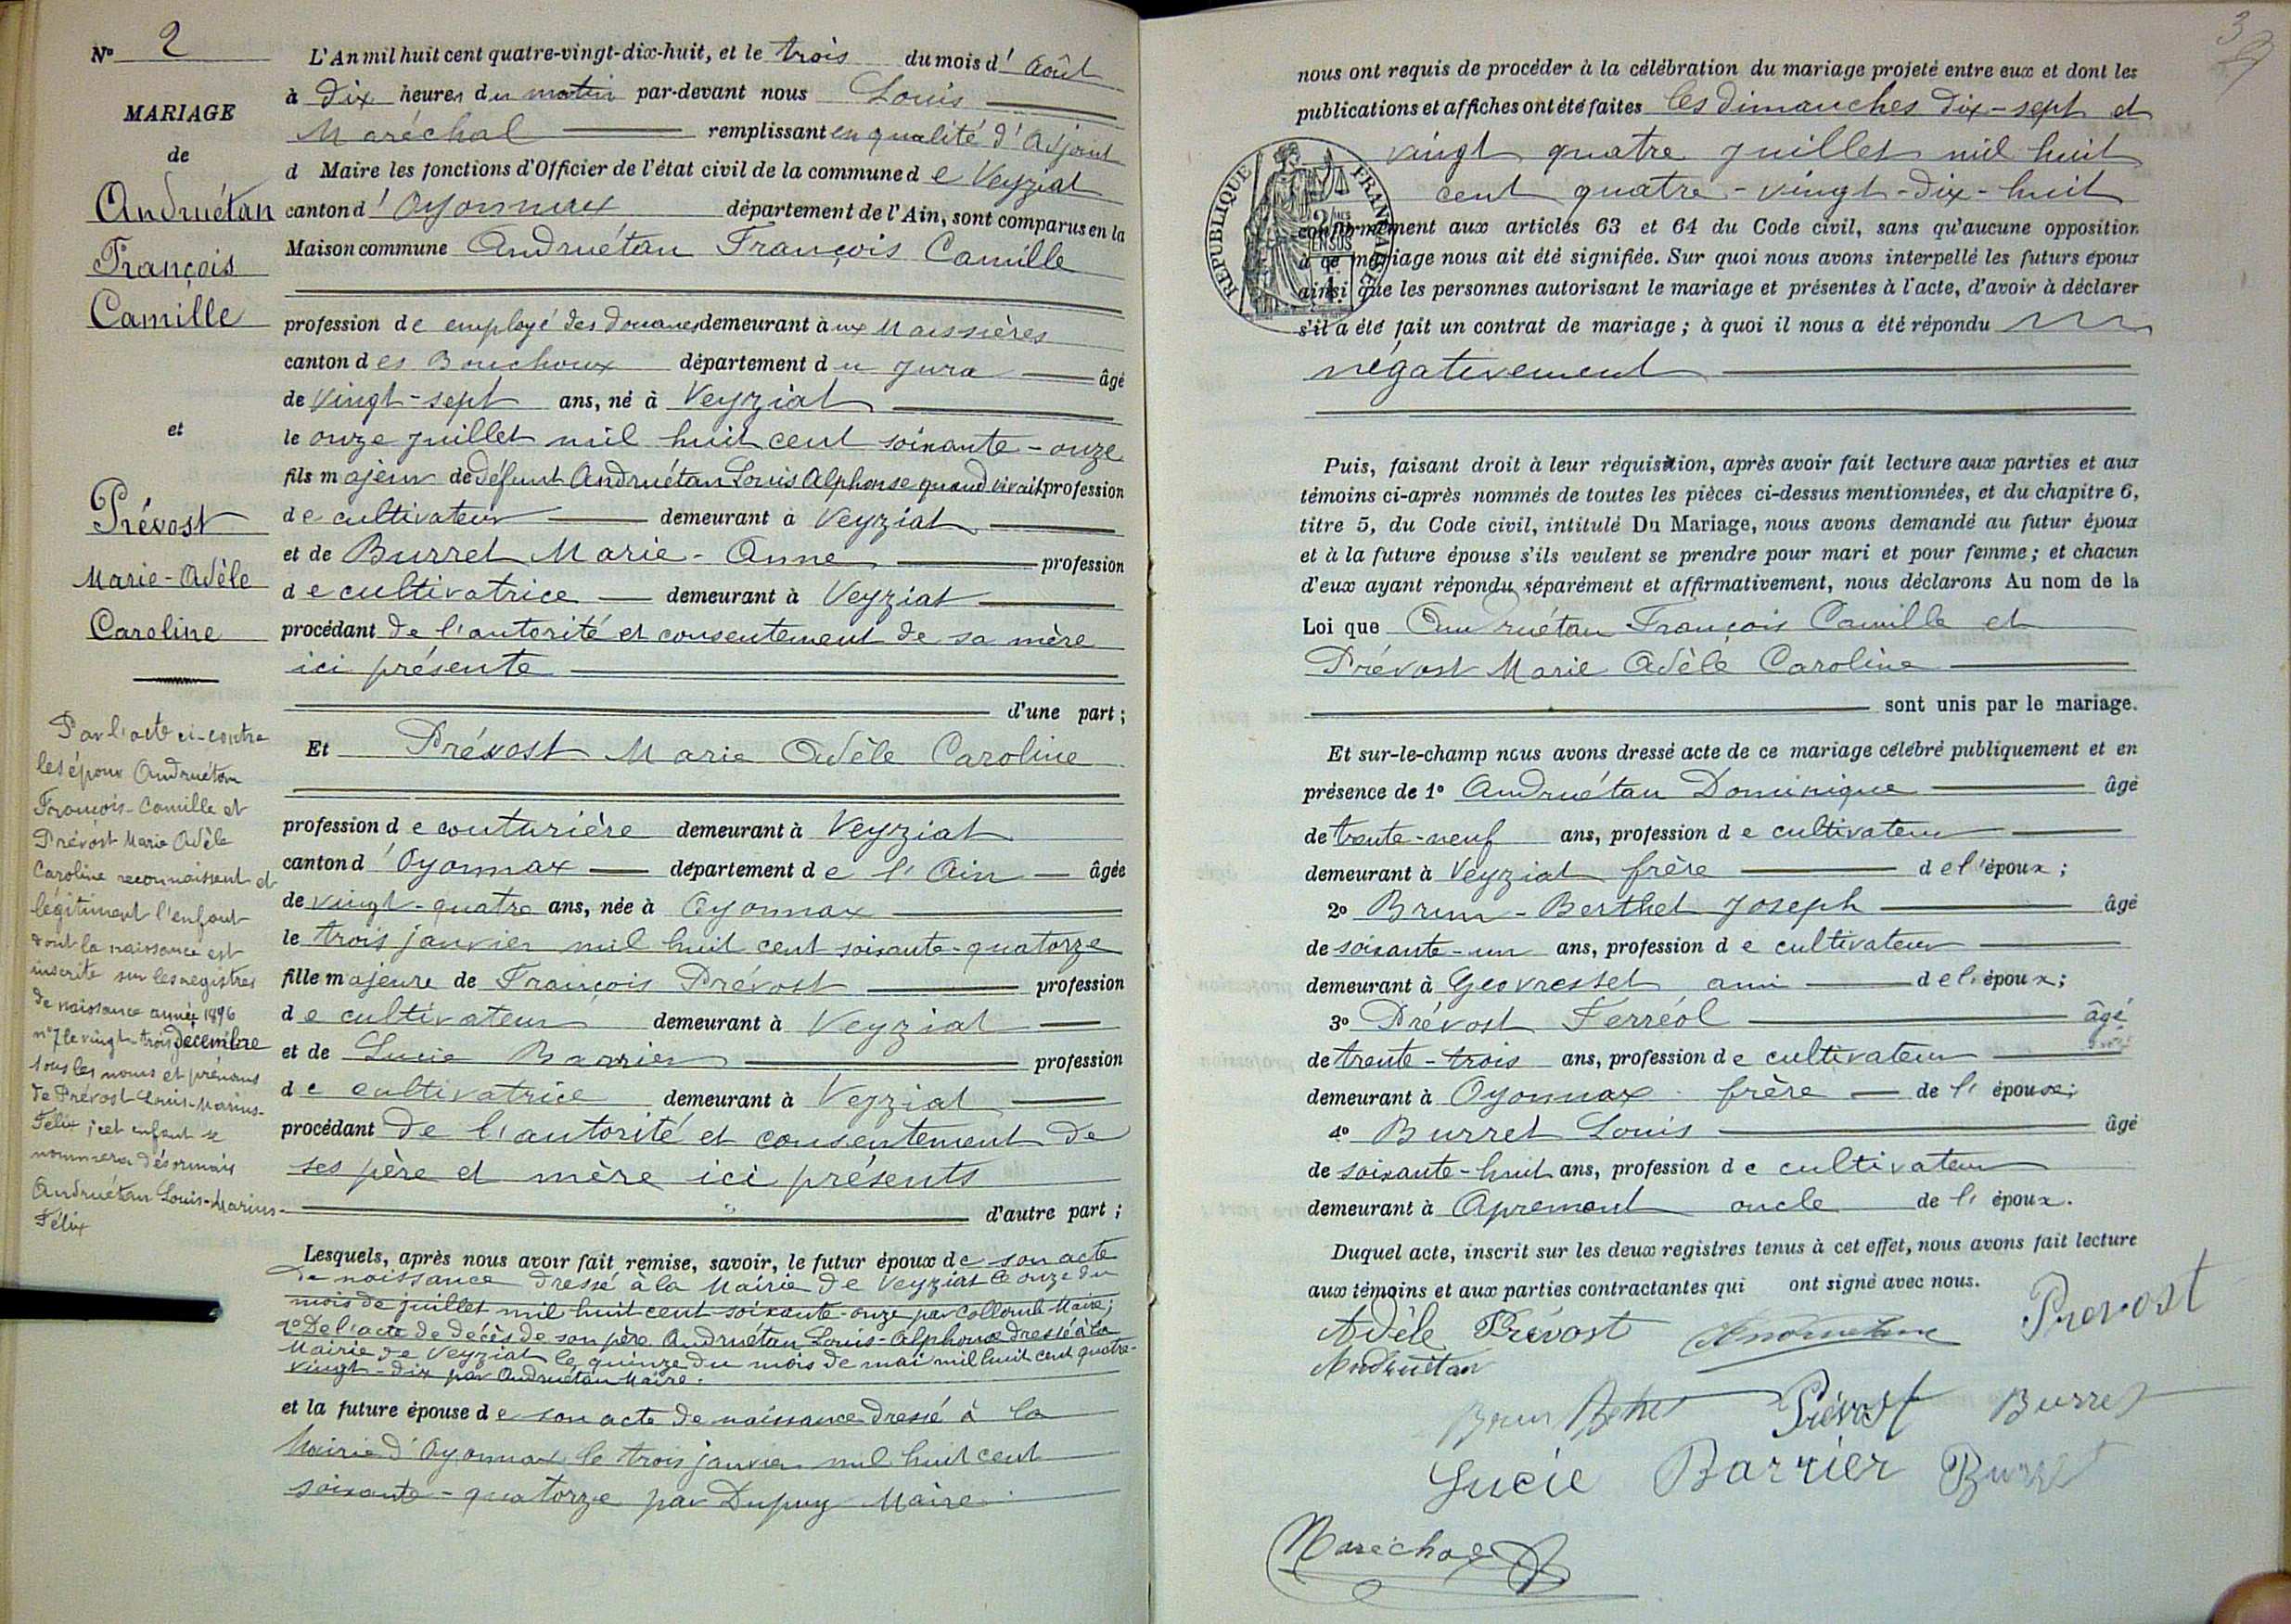 N° 2
MARIAGE
de
Andruétan
François
Camille
et
Prévost
Marie-Adèle
Caroline
Par l'acte ci-contre
les époux Andruétan
François-Camille et
Prévost Marie Adèle
Caroline reconnaissent et
légitiment l'enfant
dont la naissance est
inscrite sur les registres
de naissance année 1896
n° 7 le vingt-trois décembre
sous les noms et prénoms
de Prévost Louis-Marius-
Félix ; cet enfant se
nommera désormais
Andruétan Louis-Marius-
Félix
L'An mil huit cent quatre-vingt-dix-huit, et le trois du mois d'Août
à dix heures du matin par-devant nous Louis
Maréchal remplissant en qualité d'Adjoint
d Maire les fonctions d'Officier de l'état civil de la commune de Veyziat
canton d'Oyonnax département de l'Ain, sont comparus en la
Maison commune Andruétan François Camille
profession de employé des douanes demeurant à ux Moissières
canton des Bouchoux département du Jura âgé
de vingt-sept ans, né à Veyziat
le onze juillet mil huit cent soixante-onze
fils majeur de défunt Andruétan Louis Alphonse quand vivait profession
de cultivateur demeurant à Veyziat
et de Burret Marie-Anne profession
de cultivatrice demeurant à Veyziat
procédant de l'autorité et consentement de sa mère
ici présente
d'une part ;
Et Prévost Marie Adèle Caroline
profession de couturière demeurant à Veyziat
canton d'Oyonnax département de l'Ain âgée
de vingt-quatre ans, née à Oyonnax
le trois janvier mil huit cent soixante-quatorze
fille majeure de François Prévost profession
de cultivateur demeurant à Veyziat
et de Lucie Barrier profession
de cultivatrice demeurant à Veyziat
procédant de l'autorité et consentement de
ses père et mère ici présents
d'autre part ;
Lesquels, après nous avoir fait remise, savoir, le futur époux de son acte
de naissance dressé à la Mairie de Veyziat le onze du
mois de juillet mil huit cent soixante-onze par Collomb Maire ;
2° De l'acte de décès de son père Andruétan Louis-Alphonse dressé à la
Mairie de Veyziat le quinze du mois de mai mil huit cent quatre-
vingt-dix par Andruétan Maire.
et la future épouse de son acte de naissance dressé à la
Mairie d'Oyonnax le trois janvier mil huit cent
soixante-quatorze par Dupuy Maire.
3
nous ont requis de procéder à la célébration du mariage projeté entre eux et dont les
publications et affiches ont été faites les dimanches dix-sept et
vingt quatre juillet mil huit
cent quatre-vingt-dix-huit
REPUBLIQUE FRANÇAISE
conformément aux articles 63 et 64 du Code civil, sans qu'aucune opposition
à ce mariage nous ait été signifiée. Sur quoi nous avons interpellé les futurs époux
ainsi que les personnes autorisant le mariage et présentes à l'acte, d'avoir à déclarer
s'il a été fait un contrat de mariage ; à quoi il nous a été répondu
négativement
Puis, faisant droit à leur réquisition, après avoir fait lecture aux parties et aux
témoins ci-après nommés de toutes les pièces ci-dessus mentionnées, et du chapitre 6,
titre 5, du Code civil, intitulé Du Mariage, nous avons demandé au futur époux
et à la future épouse s'ils veulent se prendre pour mari et pour femme ; et chacun
d'eux ayant répondu séparément et affirmativement, nous déclarons Au nom de la
Loi que Andruétan François Camille et
Prévost Marie Adèle Caroline
sont unis par le mariage.
Et sur-le-champ nous avons dressé acte de ce mariage célébré publiquement et en
présence de 1° Andruétan Dominique âgé
de trente-neuf ans, profession de cultivateur
demeurant à Veyziat frère de l'époux ;
2° Brun-Berthet Joseph âgé
de soixante-un ans, profession de cultivateur
demeurant à Geovresset ami de l'époux ;
3° Prévost Ferréol âgé
de trente-trois ans, profession de cultivateur
demeurant à Oyonnax frère de l'épouse ;
4° Burret Louis âgé
de soixante-huit ans, profession de cultivateur
demeurant à Apremont oncle de l'époux.
Duquel acte, inscrit sur les deux registres tenus à cet effet, nous avons fait lecture
aux témoins et aux parties contractantes qui ont signé avec nous.
Adèle Prévost Prevost
Andruétan
Brun Prévost Burret
Lucie Barrier Burret
Maréchal